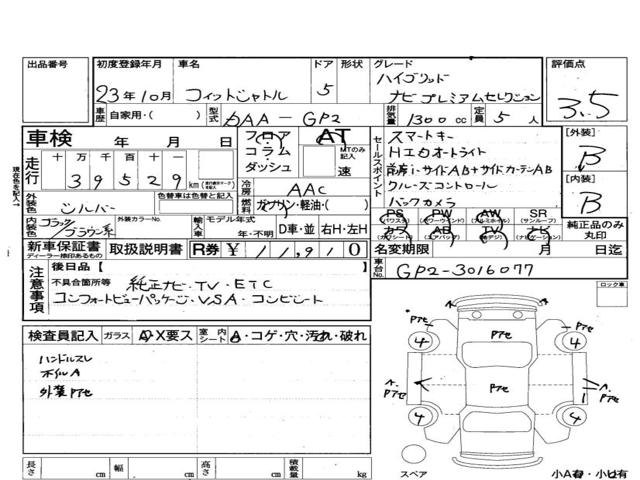 出品番号 初度登録年月 車名 ドア 形状 グレード 評価点
23年10月 フィットシャトル 5 ハイブリッド
ナビプレミアムセレクション 3.5
車歴 自家用・( ) 型式 DAA-GP2 排気量 1300cc 定員 5人
車検 年 月 日 フロア コラム ダッシュ AT MTのみ記入 速
セールスポイント スマートキー [外装] B
HIDオートライト
前席i-サイドAB+サイドカーテンAB
走行 十 万 千 百 十 39529 km 冷房 AAC クルーズコントロール [内装] B
現在色を記入→
外装色 シルバー 色替車は色替と記入 燃料 ガソリン・軽油・( ) バックカメラ
内装色 ブラックブラウン系 外装カラーNo. 輸入車 モデル年式 年・不明 D車・並 右H・左H
PS (パワステ) PW (パワーウインド) AW (アルミホイル) SR (サンルーフ) 純正品のみ丸印
カワ (カワシート) AB (エアバッグ) TV (地デジ) ナビ (ナビゲーション)
新車保証書 ディーラー捺印あるもの 取扱説明書 R券 ¥ 11,910 名変期限 月 日迄
注意事項 後日品【 】 車台No. GP2-3016077
不具合箇所等 純正ナビ・TV・ETC
コンフォートビューパッケージ・VSA・コンビシート
ロック車
検査員記入 ガラス A・X要ス 室内シート A・コゲ・穴・汚れ・破れ
ハンドルスレ
ホイルA
外装Pアセ
Pアセ Pアセ
4 4
A. Pアセ Pアセ A. Pアセ
4 4
スペア 小A有・小U有
長さ cm 幅 cm 高さ cm 積載量 kg